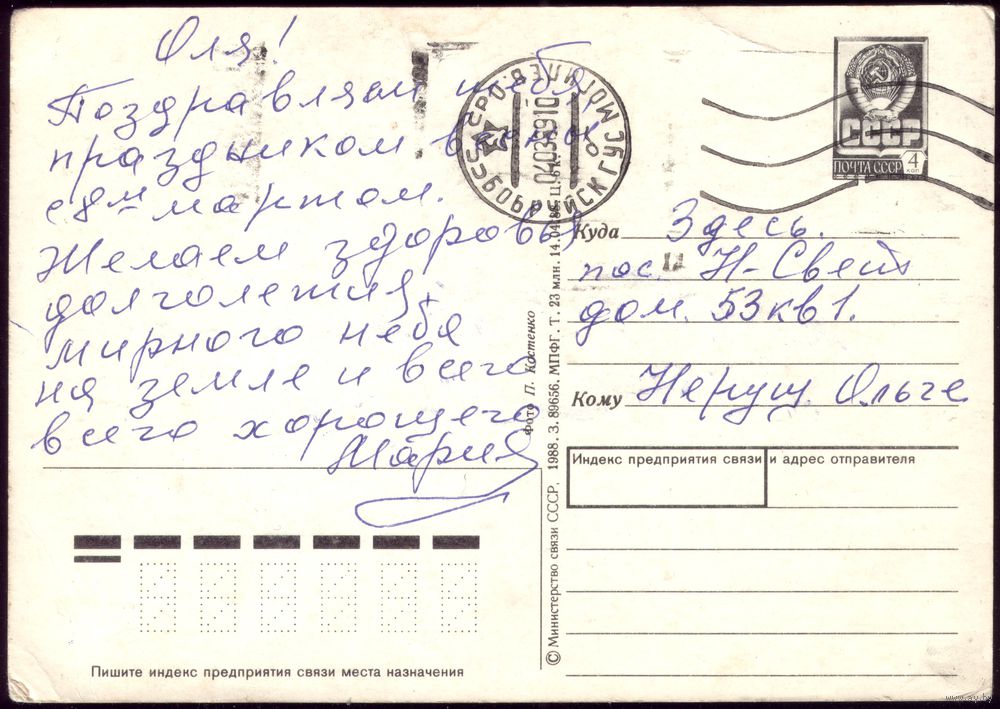 Оля!
Поздравляем тебя
праздником весны
с 8м мартом.
Желаем здоровья
долголетия,
мирного неба
на земле и всего
всего хорошего
Мария
СССР
ПОЧТА СССР 4 КОП
БОБРУЙСК
Куда Здесь.
пос. Н-Свет
дом. 53 кв 1.
Кому Неруш Ольге
Индекс предприятия связи и адрес отправителя
Фото П. Костенко
© Министерство связи СССР, 1988. З. 89656. МПФГ. Т. 23 млн. 14. 04.
Пишите индекс предприятия связи места назначения
www.ay.by